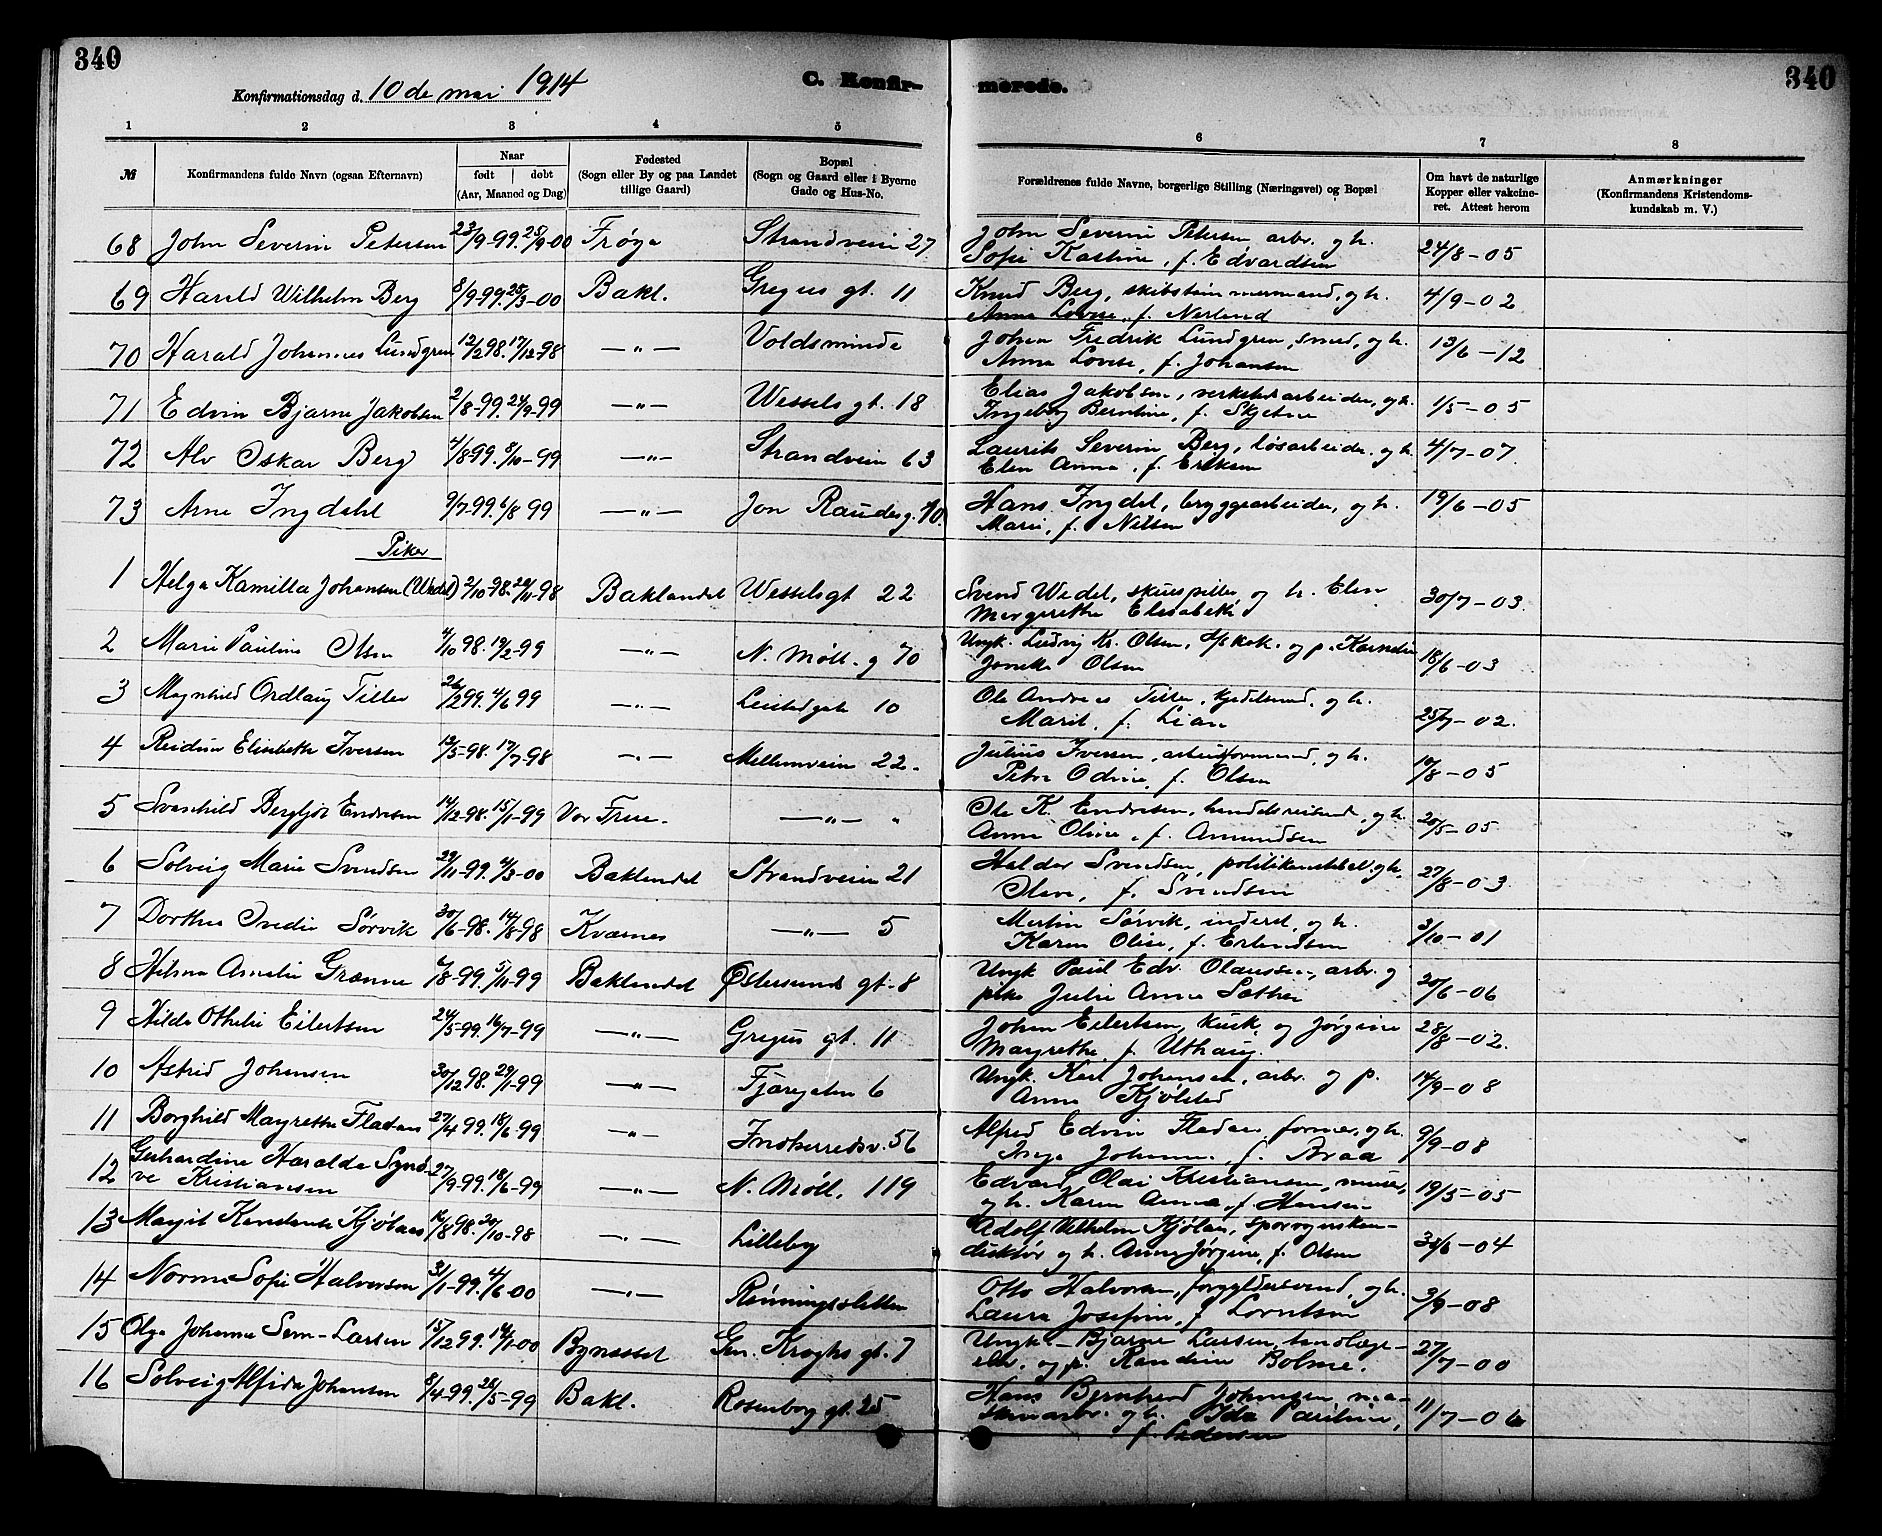 340
340
Konfirmationsdag d. 10 de mai 1914
C. Konfir- merede.
1 2 3 4 5 6 7 8
№ Konfirmandens fulde Navn (ogsaa Efternavn) Naar født døbt (Aar, Maaned og Dag) Fødested (Sogn eller By og paa Landet tillige Gaard) Bopæl (Sogn og Gaard eller i Byerne Gade og Hus-No. Forældrenes fulde Navne, borgerlige Stilling (Næringsvei) og Bopæl Om havt de naturlige Kopper eller vakcineret. Attest herom Anmærkninger (Konfirmandens Kristendomskundskab m. V.)
68 John Severin Petersen 23/9-99. 25/9-00 Frøya Strandveien 27 John Severin Petersen arbr. og h. Sofie Kastine, f. Edvardsen 24/8-05
69 Harald Wilhelm Berg 8/9-99. 25/3-00 Bakl. Gregus gt. 11 Knud Berg, skibstømmermand, og h. Anna Lovise, f. Nerland 4/9-02
70 Harald Johannes Lundgren 12/2 98. 17/12-98 —„— Voldsminde Johan Fredrik Lundgren, smed, og h. Anna Lovise, f. Johansen 13/6-12
71 Edvin Bjarne Jakobsen 2/8-99. 24/9-99 —„— Wessels gt. 18 Elias Jakobsen, verkstedarbeider, og h. Ingeborg Berntine, f. Skjetne 1/5-05
72 Alv Oskar Berg 4/8-99. 8/10-99 —„— Strandveien 63 Laurits Severin Berg, løsarbeider og h. Elen Anna, f. Eriksen 4/7-07
73 Arne Ingdahl 9/7-99. 6/8 99 —„— Jon Raudes g. 10. Hans Ingdal, bryggearbeider, og h. Marie, f. Nilsen 19/6-05
Piker
1 Helga Kamilla Johansen (Wedel) 2/10-98. 20/11-98 Baklandet Wesselsgt 22 Svend Wedel, skuespiller og h. Elen Margrethe Elisabeth 30/7-03
2 Marie Pauline Olsen 4/10 98. 19/2-99 —„— N. Møll. g 70 Ungk. Ludvig Kr. Olsen, og p. Kornelia Jonette Olsen 18/6-03
3 Magnhild Ordlaug Tiller 26/2 99. 4/6 99 —„— Leistadgate 10 Ole Andreas Tiller, kjedelsmed, og h. Marit, f. Lian 25/7-02.
4 Reidun Elisabeth Iversen 12/5-98. 17/7-98 —„— Mellemveien 22. Julius Iversen, arbeidsformand, og h. Petra Odine, f. Olsen 10/8-05
5 Svanhild Bergljot Endresen 14/12-98. 15/1-99 Vor Frue. —„— „ Ole K. Endresen, handelsreisende, og h. Anna Oline, f. Amundsen 20/5-05
6 Solveig Marie Svendsen 29/11-99. 4/3-00 Baklandet Strandveien 21 Haldor Svendsen, politikonstabel og h. Oleve, f. Svendsen 27/8-03
7 Dorthea Ovedie Sørvik 30/6-98. 14/8-98 Kvernes —„— 5 Martin Sørvik, inderst, og h. Karen Olise, f. Erlandsen 3/10-01
8 Hilma Amalie Grønne 6/8-99. 5/11-99 Baklandet Østersunds gt. 8 Ungk Paul Edv. Olaussen, arbr. og pike Julie Anna Sather 20/6-06
9 Hilda Othelie Eilertsen 24/5-99. 16/7-99 —„— Gregus gt. 11 Johan Eilertsen, kusk, og Jørgine Margrethe f. Uthaug. 28/8-02.
10 Astrid Johansen 30/12 98. 29/1-99 —„— Fjæregaten 6 Ungk. Karl Johansen, arbr. og p. Anna Kjølstad 14/9-08
11 Borghild Margrethe Fladen 27/4 99. 18/6-99 —„— Indherredsv. 51 Alfred Edvin Fladen, former, og h. Inga Johanne, f. Braa 9/9-08
12 Gerhardine Haralda Synøve Kristiansen 27/9-99. 18/6-99 —„— N. Møll. 119 Edvard Olai Kristiansen, murer, og h. Karen Anna, f. Hansen 19/5-05
13 Margit Konstanse Kjølaas 16/8 98. 30/10-98 —„— Lilleby Adolf Vilhelm Kjølaas, sporvognskonduktør og h. Anna Jørgine, f. Olsen 30/6-04
14 Norma Sofie Halvorsen 31/1-99. 4/6-00 —„— Rønningsletten Otto Halvorsen, forgyldersvend, og h. Laura Josefine, f. Lorntsen 3/9-08
15 Olga Johanne Sem-Larsen 15/12 99. 14/1-00 Bynesset Gen. Kroghs gt. 7 Ungk. Bjarne Larsen, tandlægeelev. og p. Randine Bolme. 27/7-00
16 Solveig Alfida Johansen 8/4-99. 28/5-99 Bakl. Rosenborg gt. 25 Hans Bernhard Johansen, maskinarbr. og h. Ida Pauline, f. Pedersen 11/7-06